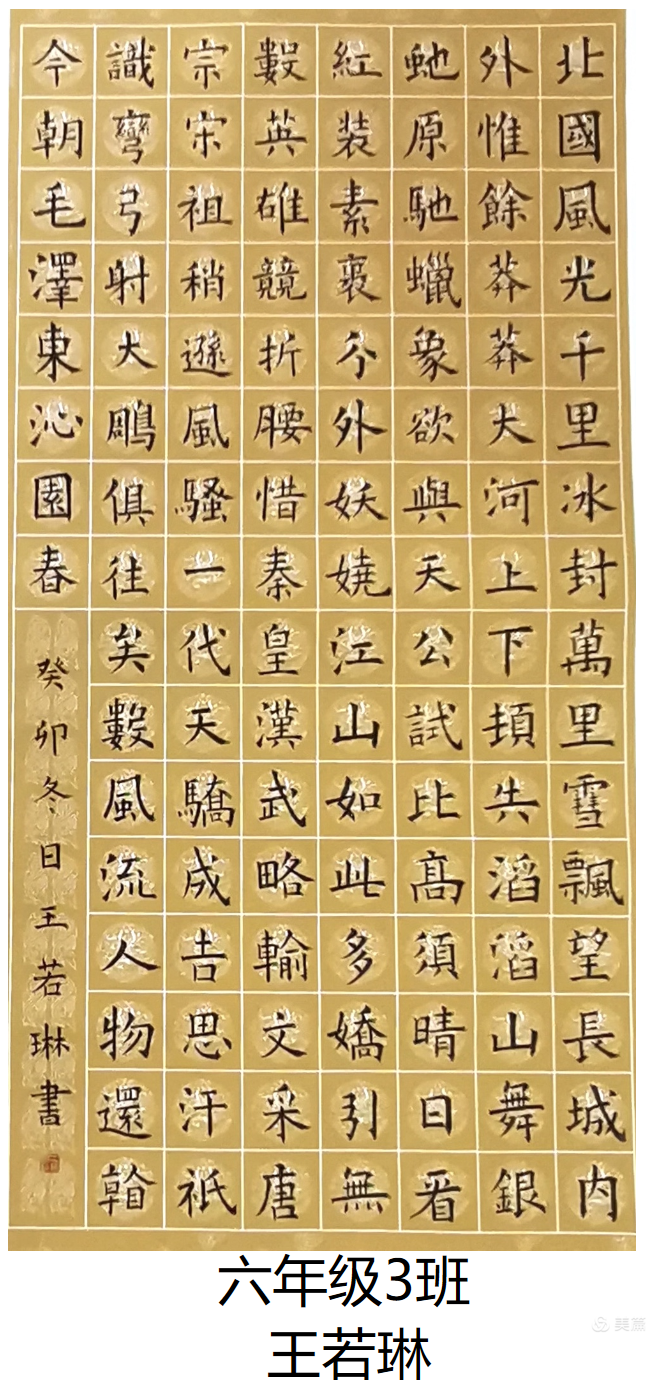 北國風光千里冰封萬里雪飄望長城内
外惟餘莽莽大河上下頓失滔滔山舞銀
虵原馳蠟象欲與天公試比高須晴日看
紅装素裹分外妖嬈江山如此多嬌引無
數英雄競折腰惜秦皇漢武略輸文采唐
宗宋祖稍遜風騷一代天驕成吉思汗祇
識彎弓射大鵰俱往矣數風流人物還看
今朝毛澤東沁園春
癸卯冬日王若琳書
六年级3班
王若琳